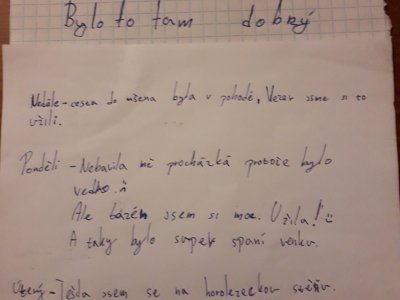 Bylo to tam dobrý
Neděle - cesta do mšena byla v pohodě, Večer jsme si to
užili.
Pondělí - Nebavila mě procházká protože bylo
vedro.
Ale bázén jsem si moc Užila!
A taky bylo super spaní venku.
Úterý - Těšila jsem se na horolezeckou